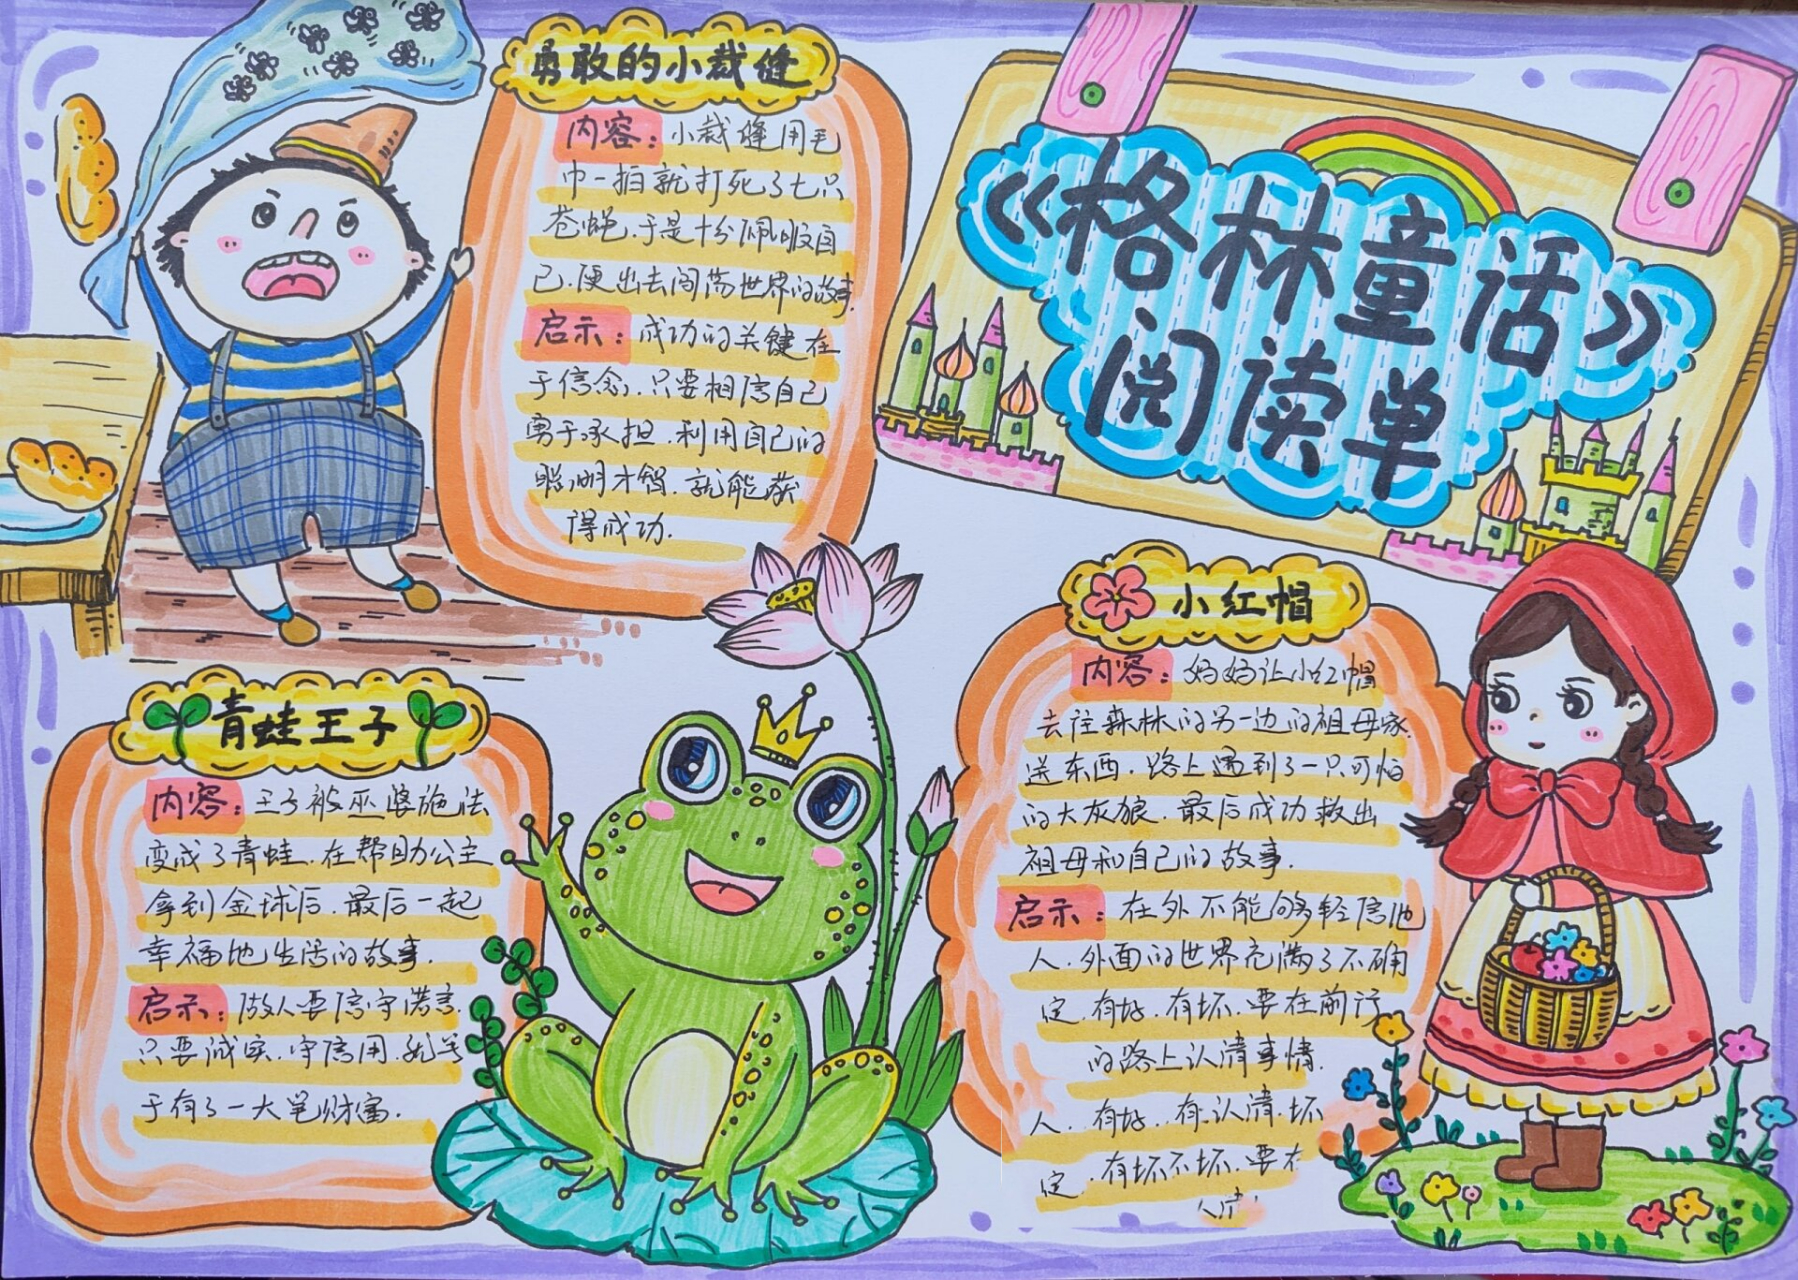 勇敢的小裁缝
内容：小裁缝用毛
巾一拍就打死了七只
苍蝇.于是十分佩服自
己.便出去闯荡世界的故事.
启示：成功的关键在
于信念.只要相信自己
勇于承担.利用自己的
聪明才智.就能获
得成功.
《格林童话》
阅读单
青蛙王子
内容：王子被巫婆施法
变成了青蛙.在帮助公主
拿到金球后.最后一起
幸福地生活的故事.
启示：做人要信守诺言.
只要诚实.守信用.就等
于有了一大笔财富.
小红帽
内容：妈妈让小红帽
去往森林的另一边的祖母家.
送东西.路上遇到了一只可怕
的大灰狼.最后成功救出
祖母和自己的故事.
启示：在外不能够轻信他
人.外面的世界充满了不确
定.有好.有坏.要在前行
的路上认清事情.
人..有好..有.认清.坏
定.有坏不坏.要在